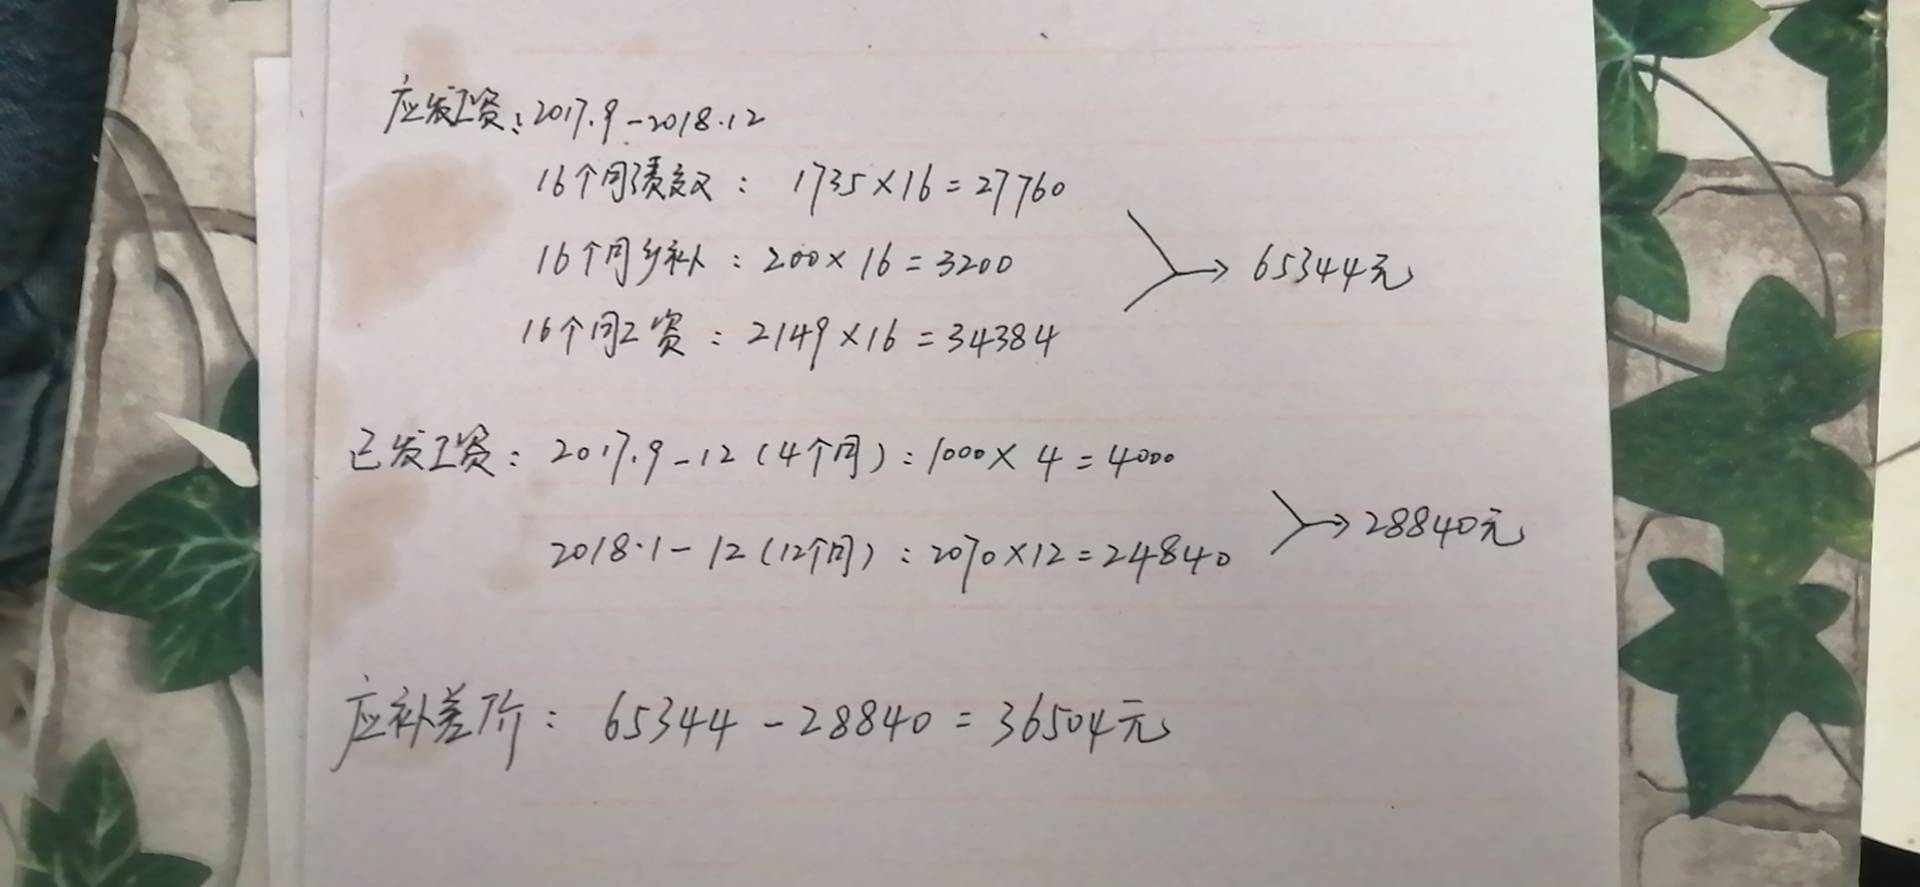 应发工资：2017.9-2018.12
16个月绩效：1735×16=27760
16个月乡补：200×16=3200
→65344元
16个月工资：2149×16=34384
已发工资：2017.9-12(4个月)：1000×4=4000
→28840元
2018.1-12(12个月)：2070×12=24840
应补差价：65344-28840=36504元